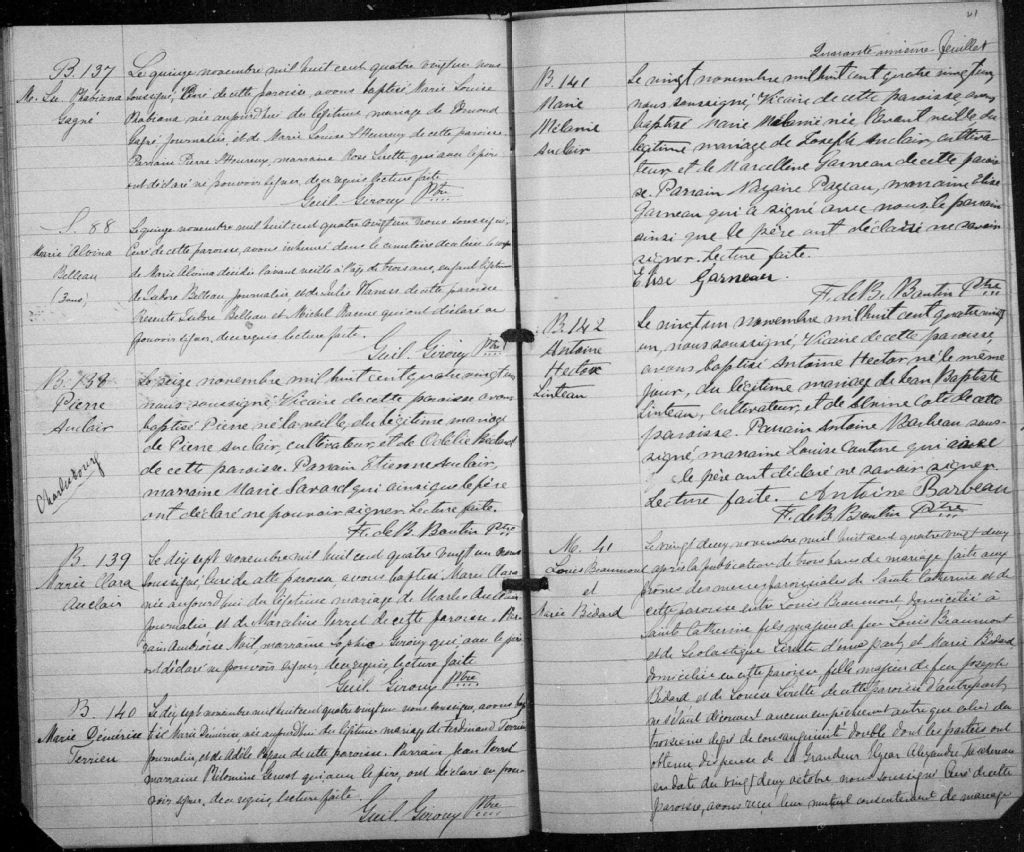 B. 137
M. Lse Phébiana
Gagné
Le quinze novembre mil huit cent quatre vingt un nous
soussigné, Curé de cette paroisse, avons baptisé Marie Louise
née aujourd'hui du légitime mariage de Edmond
Gagné, Journalier, et de Marie Louise L'Heureux de cette paroisse.
Parrain Pierre L'Heureux, marraine Rose Lirette, qui avec le père
ont déclaré ne pouvoir signer, de ce requis lecture faite
Guil. Giroux Ptre
S. 88
Marie Alvina
Belleau
(3 ans)
Le quinze novembre mil huit cent quatre vingt un nous soussigné
Curé de cette paroisse, avons inhumé dans le cimetière de ce lieu le corps
de Marie Alvina décédée l'avant veille à l'âge de trois ans, enfant légitime
de Isidore Belleau Journalier, et de Julie de cette paroisse
Présents Isidore Belleau et Michel Racine qui ont déclaré ne
pouvoir signer, de ce requis lecture faite.
Guil. Giroux Ptre
B. 138
Pierre
Auclair
Charlesbourg
Le seize novembre mil huit cent quatre vingt un
nous soussigné Vicaire de cette paroisse avons
baptisé Pierre né la veille, du légitime mariage
de Pierre Auclair, cultivateur, et de Odélie
de cette paroisse. Parrain Etienne Auclair,
marraine Marie Savard qui ainsi que le père
ont déclaré ne pouvoir signer. Lecture faite.
F. de B. Boutin Ptre
B. 139
Marie Clara
Auclair
Le dix sept novembre mil huit cent quatre vingt un nous
soussigné Curé de cette paroisse, avons baptisé Marie Clara
née aujourd'hui du légitime mariage de Charles Auclair
Journalier et de Marceline Verret de cette paroisse. Par-
rain Ambroise Noël, marraine Sophie Giroux, qui, avec le père
ont déclaré ne pouvoir signer, de ce requis, lecture faite
Guil. Giroux Ptre
B. 140
Marie Démérise
Terrien
Le dix sept novembre mil huit cent quatre vingt un nous soussigné, avons bap-
tisé Marie Démérise née aujourd'hui du légitime mariage de Ferdinand Terrien
Journalier, et de Adèle Pageau de cette paroisse. Parrain Jean Verret
marraine Philomène Genest qui avec le père, ont déclaré ne pou-
voir signer, de ce requis, lecture faite.
Guil. Giroux Ptre
41
Quarante unième feuillet
B. 141
Marie
Mélanie
Auclair
Le vingt novembre mil huit cent quatre vingt un,
nous soussigné, Vicaire de cette paroisse, avons
baptisé Marie Mélanie née l'avant veille du
légitime mariage de Joseph Auclair, cultiva-
teur, et de Marcelline Garneau de cette parois-
se. Parrain Nazaire Pageau, marraine Elise
Garneau qui a signé avec nous, le parrain
ainsi que le père ont déclaré ne savoir
signer. Lecture faite.
Elise Garneau.
F. de B. Boutin Ptre
B. 142
Antoine
Hector
Linteau
Le vingt un novembre mil huit cent quatre vingt
un, nous soussigné, Vicaire de cette paroisse,
avons baptisé Antoine Hector, né le même
jour, du légitime mariage de Jean Baptiste
Linteau, cultivateur, et de Coté de cette
paroisse. Parrain Antoine Barbeau sous-
signé, marraine Louise Couture qui avec
le père ont déclaré ne savoir signer.
Lecture faite. Antoine Barbeau
F. de B. Boutin Ptre
M. 41
Louis Beaumont
et
Marie Bédard
Le vingt deux novembre mil huit cent quatre vingt un,
après la publication de trois bans de mariage faite aux
prônes des messes paroissiales de Sainte Catherine et de
cette paroisse entre Louis Beaumont domicilié à
Sainte Catherine fils majeur de feu Louis Beaumont
et de Scolastique d'une part, et Marie Bédard
domiciliée en cette paroisse fille majeure de feu Joseph
Bédard et de Louise Lirette de cette paroisse d'autre part,
ne s'étant découvert aucun empêchement autre que celui du
troisième degré de consanguinité double dont les parties ont
obtenu dispense de Sa Grandeur Elzéar Alexandre Taschereau
en date du vingt deux octobre nous soussigné Curé de cette
paroisse, avons reçu leur mutuel consentement de mariage